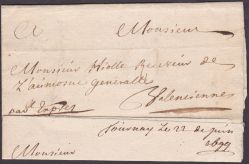 A Monsieur
Monsieur Hiolle Receveur de
L'aumosne Generalle
Valenciennes
Tournay Le 22 de juin
1699
Monsieur